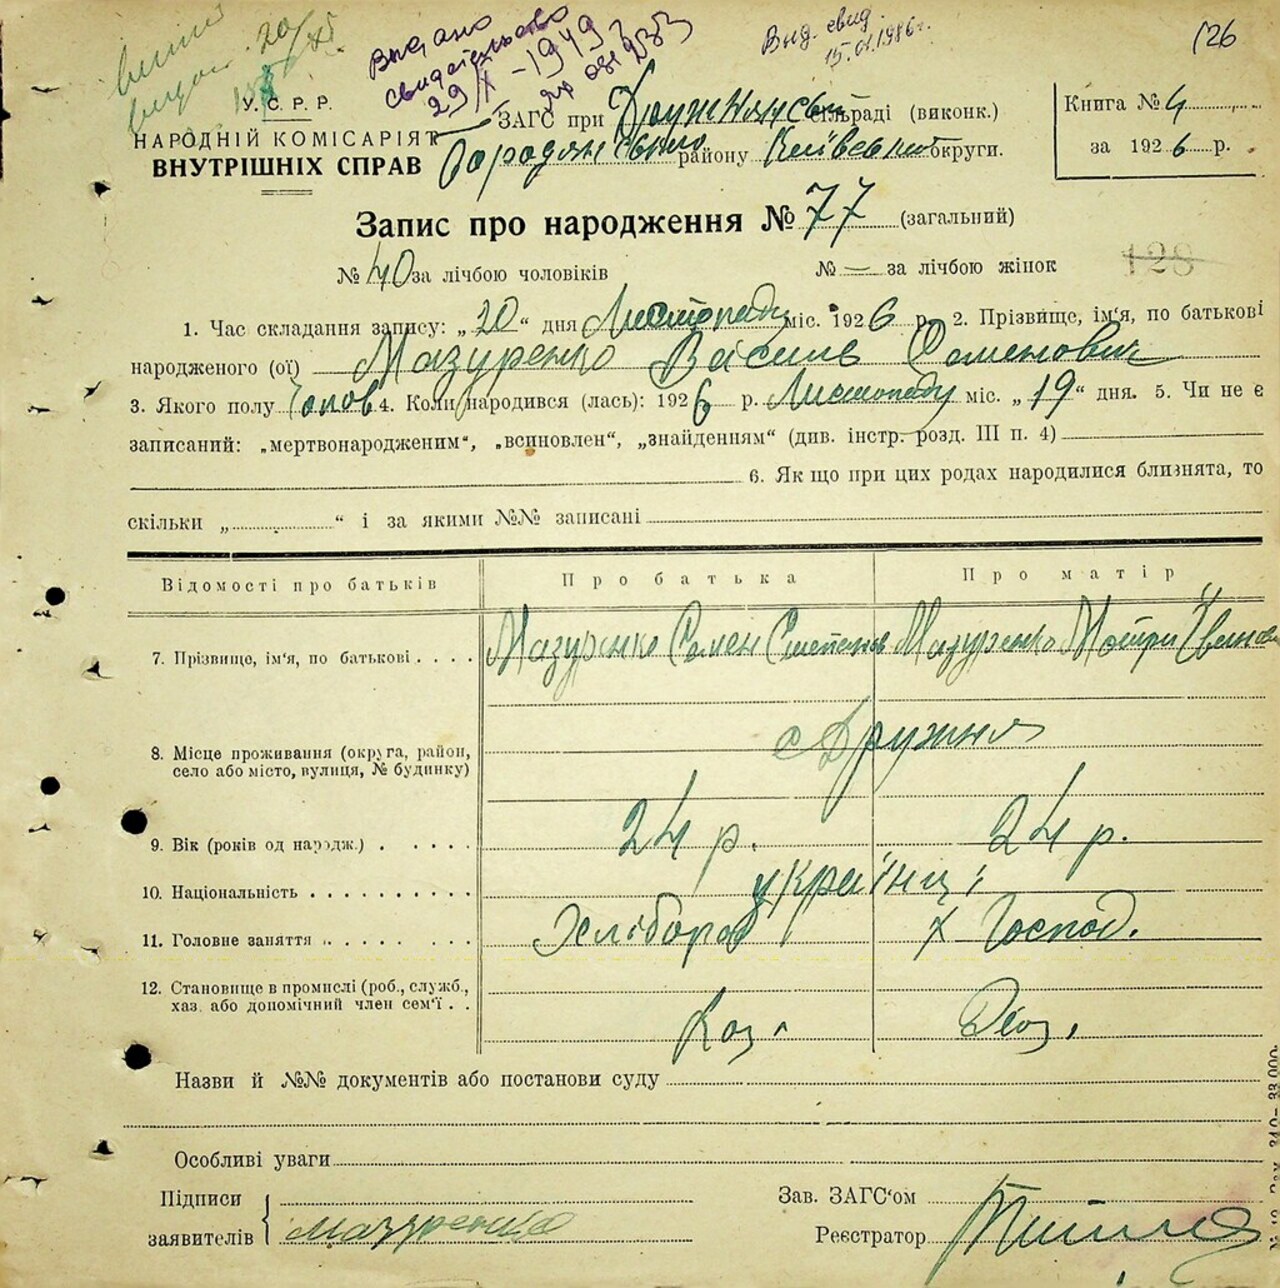 Видано
свидетельство
29/X - 1949 г
Выд. свид
15.01.1986 г.
126
У.С.Р.Р.
НАРОДНІЙ КОМІСАРІЯТ
ВНУТРІШНІХ СПРАВ
ЗАГС при Дружнянськ сільраді (виконк.)
Бородянському району Київської округи.
Книга № 4
за 1926 р.
Запис про народження № 77 (загальний)
№ 40 за лічбою чоловіків
№ — за лічбою жінок
128
1. Час складання запису: „20“ дня Листопаду міс. 1926 р. 2. Прізвище, ім'я, по батькові
народженого (ої) Мазуренко Василь Семенович
3. Якого полу Чолов 4. Коли народився (лась): 1926 р. Листопаду міс. „19“ дня. 5. Чи не є
записаний: „мертвонародженим“, „всиновлен“, „знайденням“ (див. інстр. розд. III п. 4)
6. Як що при цих родах народилися близнята, то
скільки „ “ і за якими №№ записані
Відомості про батьків
Про батька
Про матір
7. Прізвище, ім'я, по батькові . . . .
Мазуренко Семен Степанов
Мазуренко Мотря Іванова
8. Місце проживання (округа, район,
село або місто, вулиця, № будинку)
с Дружня
9. Вік (років од народж.) . . . . .
24 р.
24 р.
10. Національність . . . . . . . . . .
українці
11. Головне заняття . . . . . . . . .
Хлібороб
х Господ.
12. Становище в промислі (роб., служб.,
хаз. або допоміжний член сем'ї . .
Хаз.
Назви й №№ документів або постанови суду
Особливі уваги
Підписи
заявителів
Мазуренко
Зав. ЗАГС'ом
Реєстратор